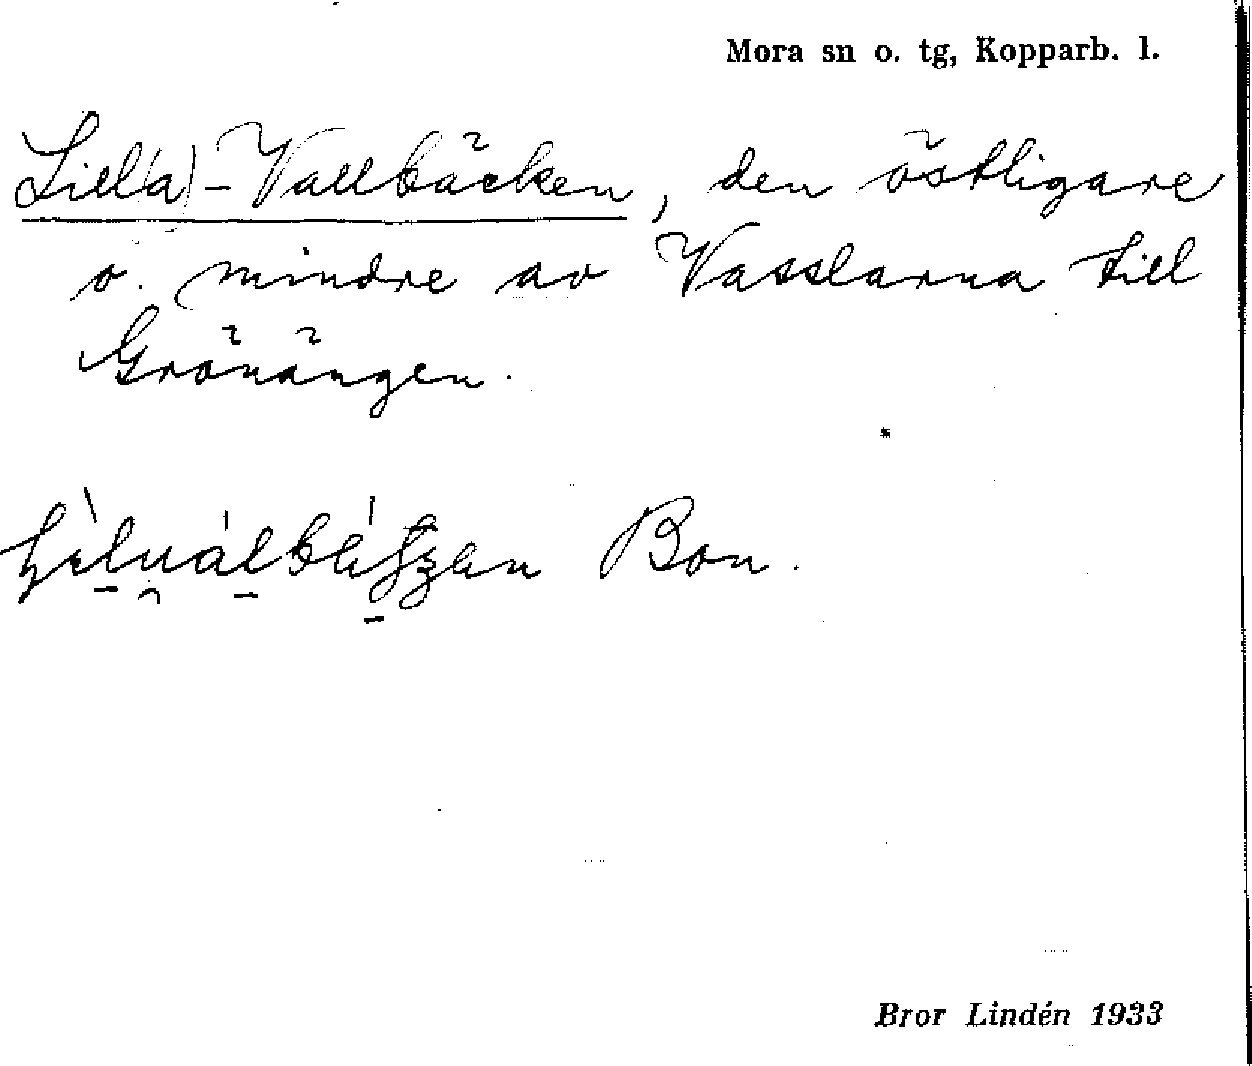 Mora sn o. tg, Kopparb. l.
Lill(a)-Vallbäcken, den östligare
o. mindre av Vasslarna till
Grönängen.
Bon.
Bror Lindén 1933